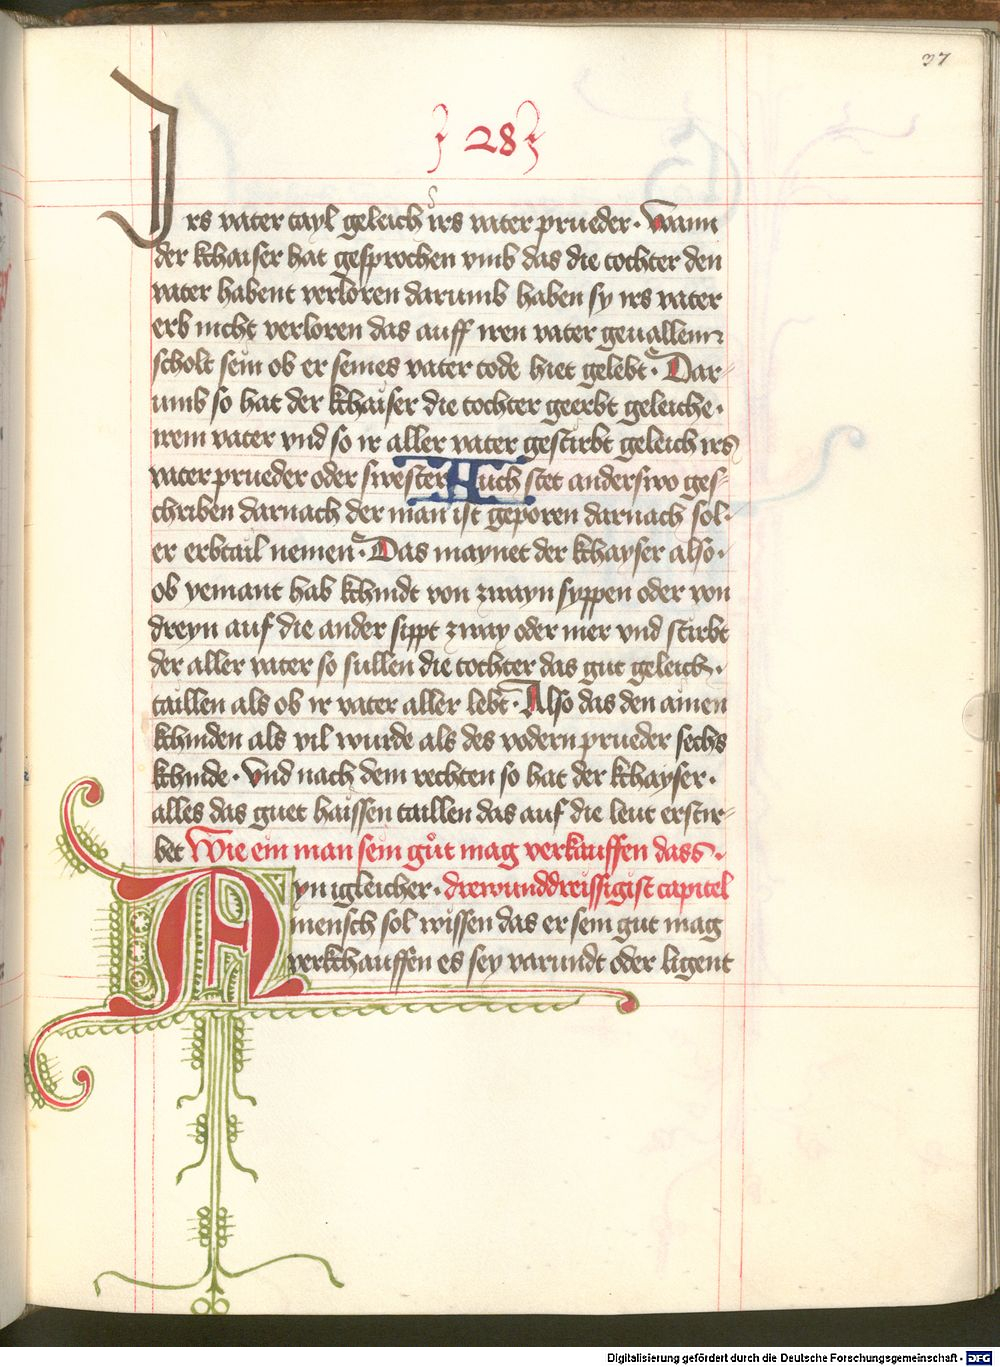 37
28
Irs vater tayl geleich irs vater prueder · Wann
der kchaiser hat gesprochen vmb das die tochter den
vater habent verloren darumb haben sy irs vater
erb nicht verloren das auff iren vater geuallenn
scholt sein ob er seines vater tode hiet gelebt · Dar-
umb so hat der kchaiser die tochter geerbt geleiche ·
irem vater vnd so ir aller vater gestirbt geleich irs
vater prueder oder swester Auch stet anderswo ges-
chriben darnach der man ist geporen darnach sol ·
er erbtail nemen · Das maynet der kchayser also ·
ob yemant hab kchindt von zwayn syppen oder von
dreyn auf die ander sippt zway oder mer vnd stirbt
der aller vater so sullen die tochter das gut geleich ·
taillen als ob ir vater aller lebt · Also das den ainen
kchinden als vil wurde als des vodern prueder sechs
kchinde · Vnd nach dem rechten so hat der kchayser ·
alles das guet haissen taillen das auf die leut erstir-
bet Wie ein man sein gůt mag verkauffen dass ·
Ayn igleicher · drewunddreissigist capitel
mensch sol wissen das er sein gut mag
verkchauffen es sey varundt oder ligent
Digitalisierung gefördert durch die Deutsche Forschungsgemeinschaft - DFG